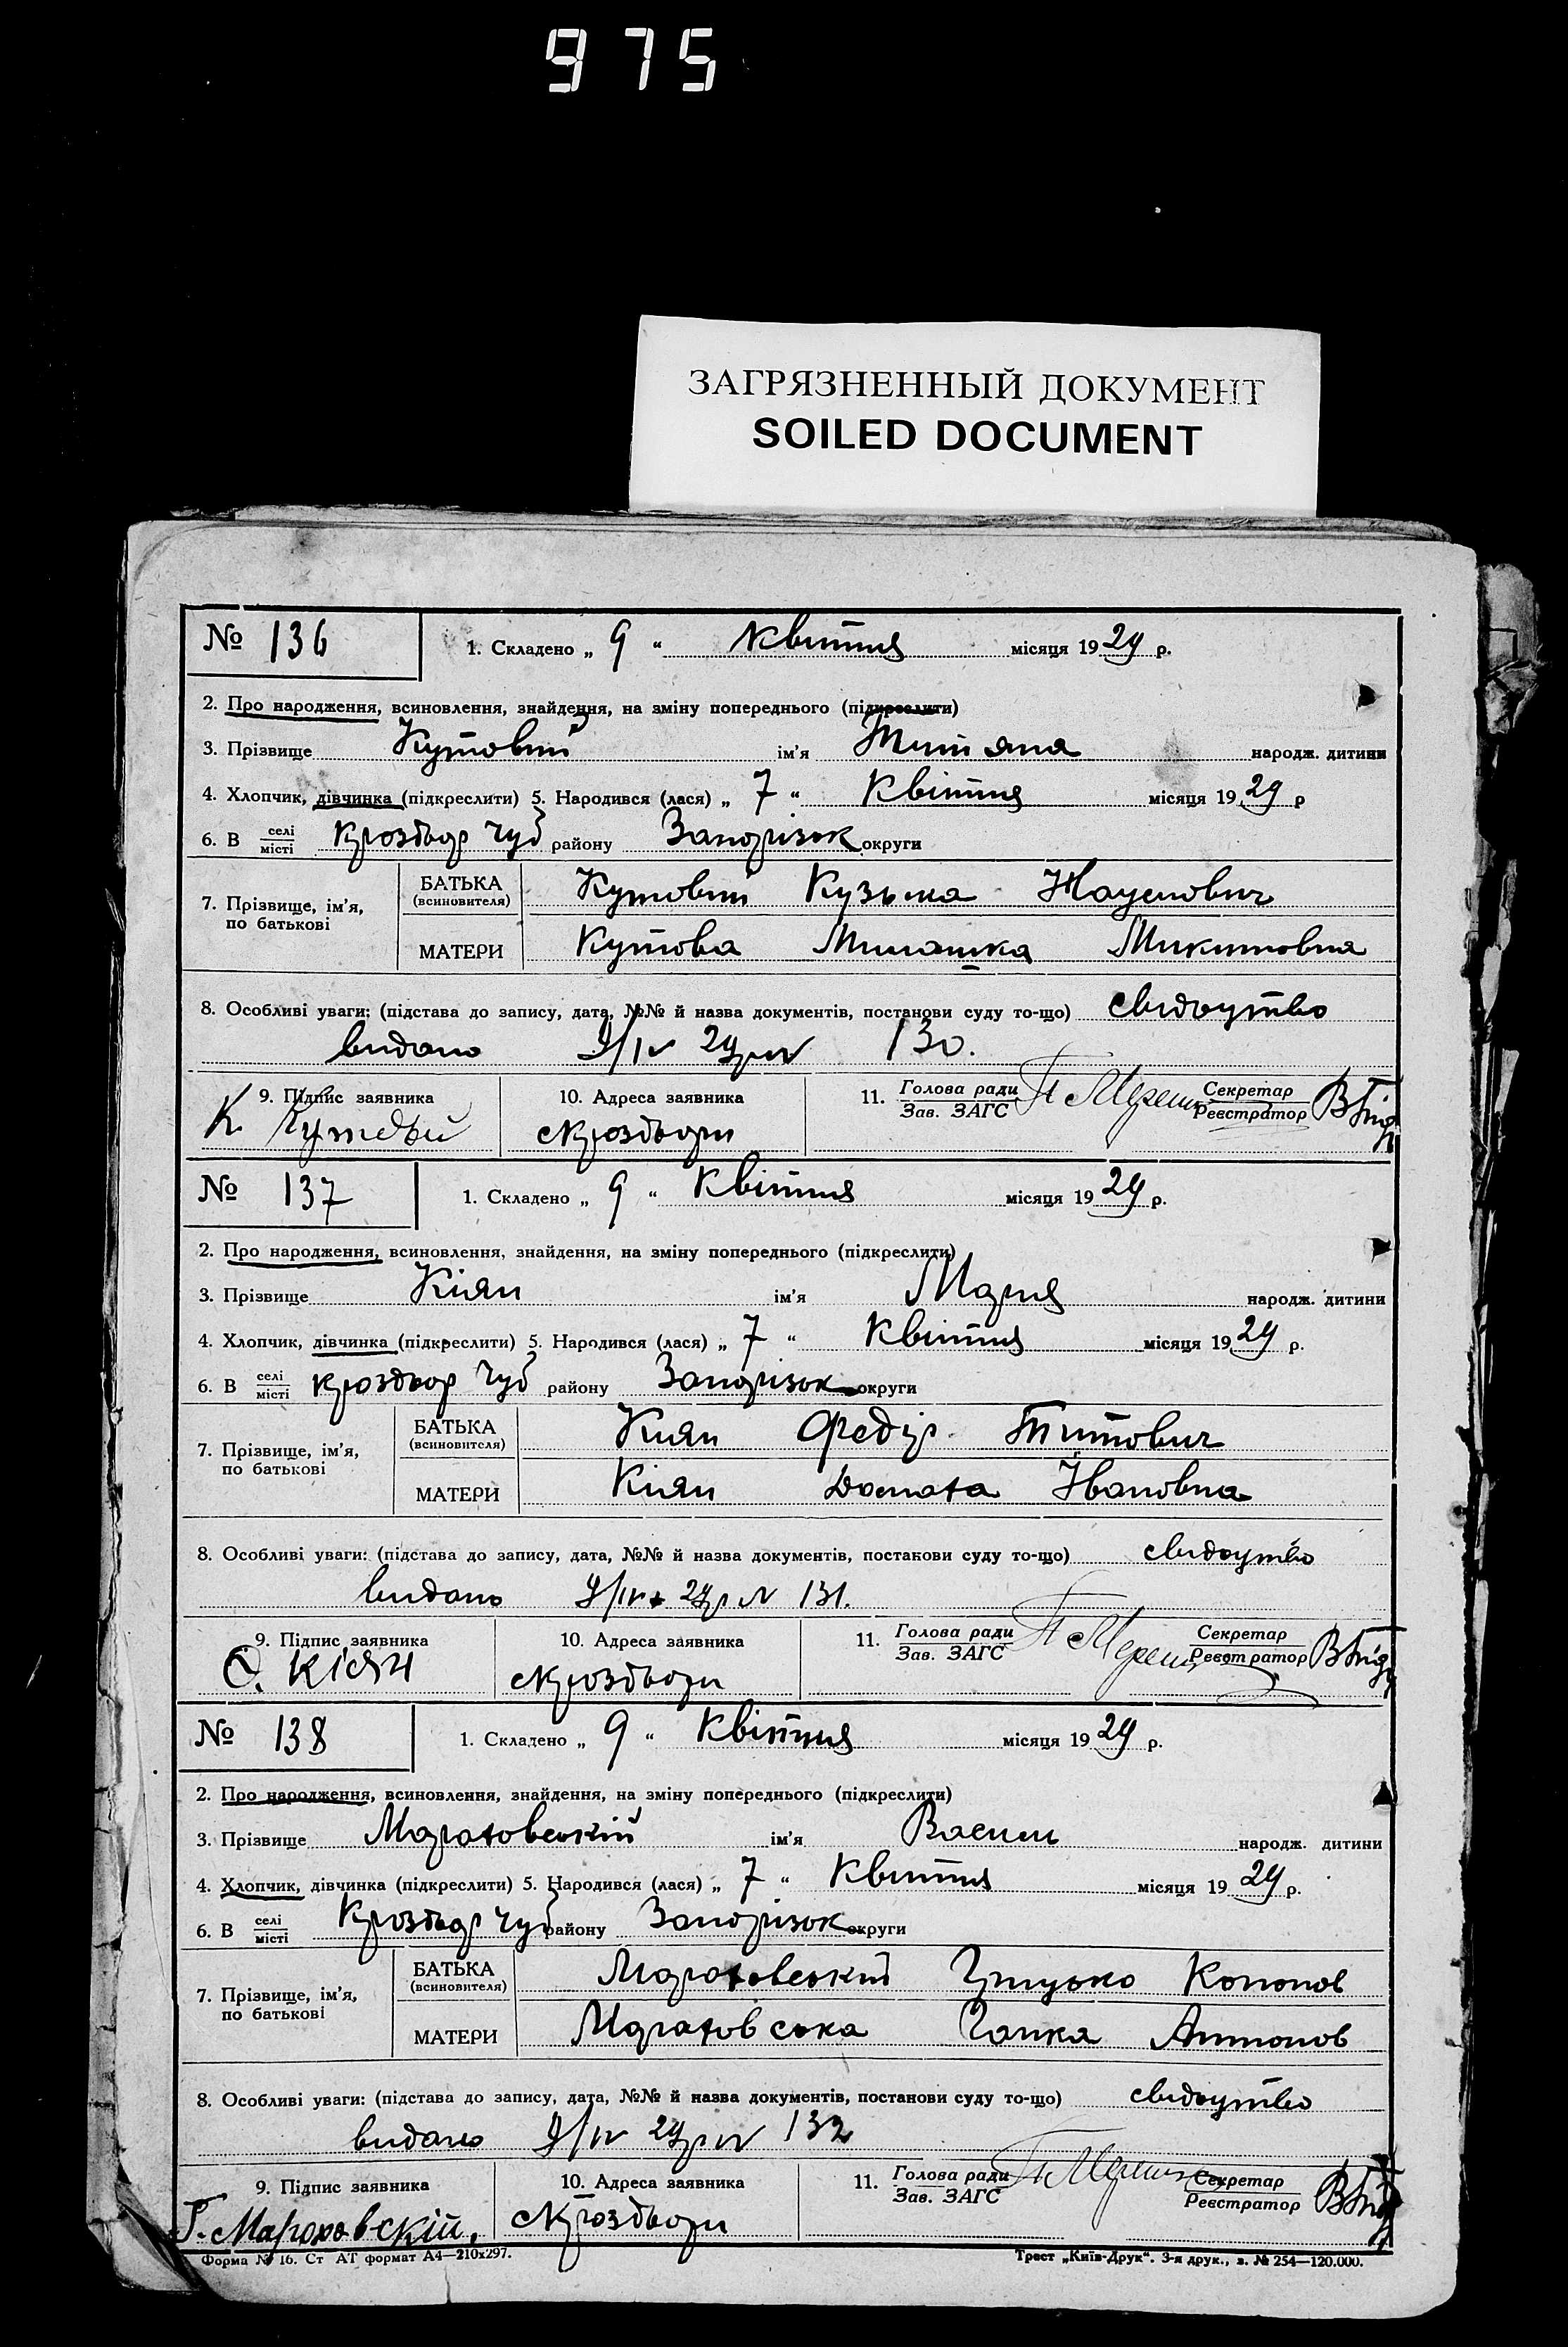 975
ЗАГРЯЗНЕННЫЙ ДОКУМЕНТ
SOILED DOCUMENT
№ 136 1. Складено „ 9 “ Квітня місяця 1929 р.
2. Про народження, всиновлення, знайдення, на зміну попереднього (підкреслити)
3. Прізвище Кутовий ім'я Титяна народж. дитини
4. Хлопчик, дівчинка (підкреслити) 5. Народився (лася) „ 7 “ Квітня місяця 1929 р
6. В селі місті Чуб району Запорізьк округи
7. Прізвище, ім'я, по батькові
БАТЬКА (всиновителя) Кутовий Кузьма
МАТЕРИ Кутова Микитовна
8. Особливі уваги: (підстава до запису, дата, №№ й назва документів, постанови суду то-що) свидоцтво
видано 9/IV 29р № 130.
9. Підпис заявника 10. Адреса заявника 11. Голова ради Зав. ЗАГС Секретар Реєстратор
К Кутовый
№ 137 1. Складено „ 9 “ Квітня місяця 1929 р.
2. Про народження, всиновлення, знайдення, на зміну попереднього (підкреслити)
3. Прізвище Кіян ім'я Мария народж. дитини
4. Хлопчик, дівчинка (підкреслити) 5. Народився (лася) „ 7 “ Квітня місяця 1929 р.
6. В селі місті Чуб району Запорізьк округи
7. Прізвище, ім'я, по батькові
БАТЬКА (всиновителя) Киян Федір Титович
МАТЕРИ Кіян Івановна
8. Особливі уваги: (підстава до запису, дата, №№ й назва документів, постанови суду то-що) свидоцтво
видано 9/IV 29р № 131.
9. Підпис заявника 10. Адреса заявника 11. Голова ради Зав. ЗАГС Секретар Реєстратор
Ѳ. Кіян
№ 138 1. Складено „ 9 “ Квітня місяця 1929 р.
2. Про народження, всиновлення, знайдення, на зміну попереднього (підкреслити)
3. Прізвище Мараховській ім'я Василь народж. дитини
4. Хлопчик, дівчинка (підкреслити) 5. Народився (лася) „ 7 “ Квітня місяця 1929 р.
6. В селі місті Чуб району Запорізьк округи
7. Прізвище, ім'я, по батькові
БАТЬКА (всиновителя) Мараховський Грицько Кононов
МАТЕРИ Мараховська Ганка Антонов
8. Особливі уваги: (підстава до запису, дата, №№ й назва документів, постанови суду то-що) свидоцтво
видано 9/IV 29р № 132
9. Підпис заявника 10. Адреса заявника 11. Голова ради Зав. ЗАГС Секретар Реєстратор
Г. Мароховскій.
Форма № 16. Ст АТ формат А4—210х297. Трест „Київ-Друк“. 3-я друк., з. № 254—120.000.